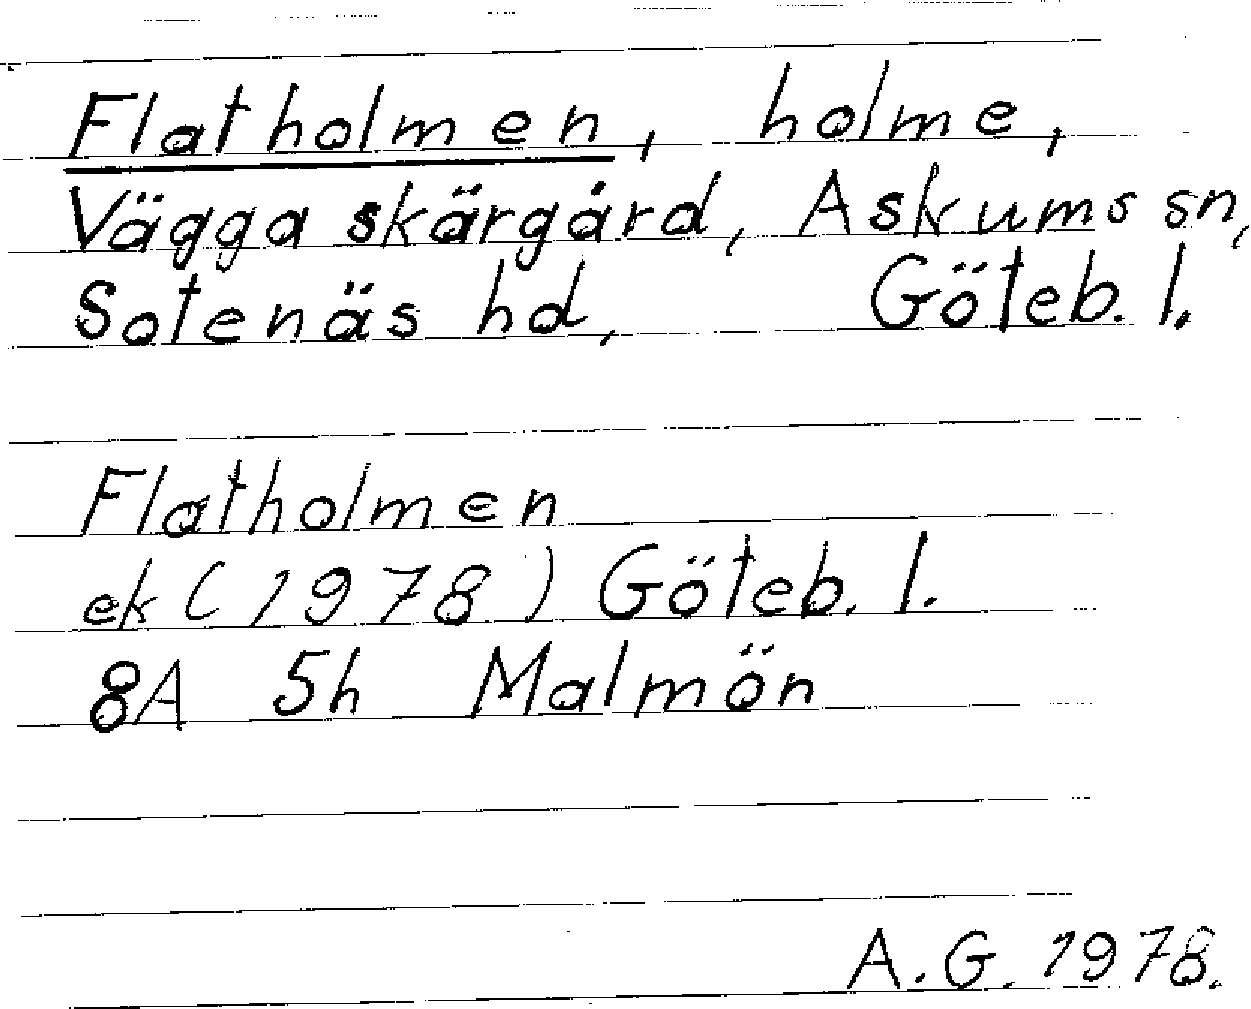 Flatholmen, holme,
Vägga skärgård, Askums sn,
Sotenäs hd, Göteb. l.
Flatholmen
ek (1978) Göteb. l.
8A 5h Malmön
A.G. 1978.